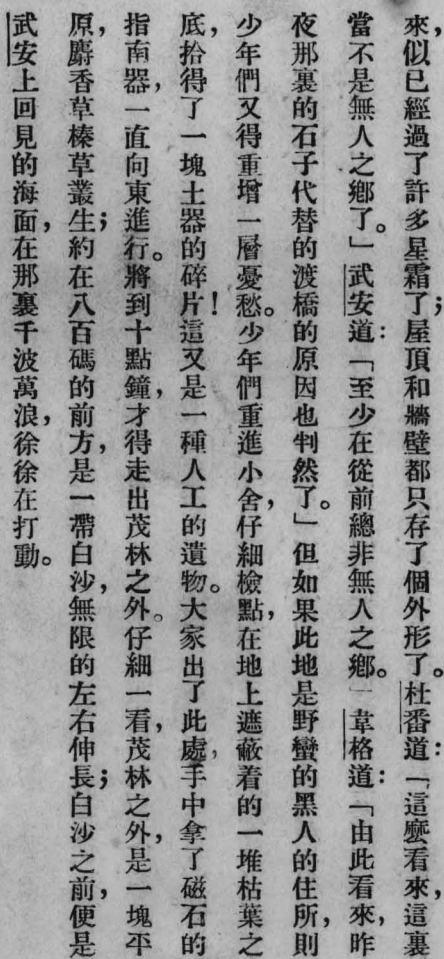 來，似已經過了許多星霜了；屋頂和牆壁都只存了個外形了。杜番道：「這麽看來，這裏
當不是無人之鄉了。」武安道：「至少在從前總非無人之鄉。」韋格道：「由此看來，昨
夜那裏的石子代替的渡橋的原因也判然了。」但如果此地是野蠻的黑人的住所，則
少年們又得重增一層憂愁。少年們重進小舍，仔細檢點，在地上遮蔽着的一堆枯葉之
底，拾得了一塊土器的碎片！這又是一種人工的遺物。大家出了此處，手中拿了磁石的
指南器，一直向東進行。將到十點鐘，才得走出茂林之外。仔細一看，茂林之外，是一塊平
原，麝香草榛草叢生；約在八百碼的前方，是一帶白沙，無限的左右伸長；白沙之前，便是
武安上回見的海面，在那裏千波萬浪，徐徐在打動。